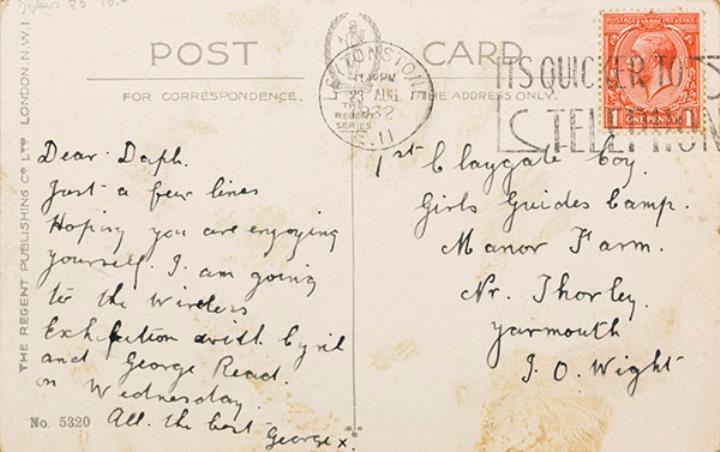 POST CARD
FOR CORRESPONDENCE. THE ADDRESS ONLY.
THE REGENT SERIES
THE REGENT PUBLISHING CO LTD LONDON. N.W.1
No. 5320
LEYTONSTONE
23 AUG
1932
E.11
ITS QUICKER TO
TELEPHONE
POSTAGE REVENUE
1 ONE PENNY 1
Dear Daph.
Just a few lines
Hoping you are enjoying
yourself. I am going
to the Wireless
Exhibition with Cyril
and George Read.
on Wednesday.
All the best
George x.
1st Claygate Coy.
Girls Guides Camp.
Manor Farm.
Nr. Thorley.
Yarmouth
I. O. Wight